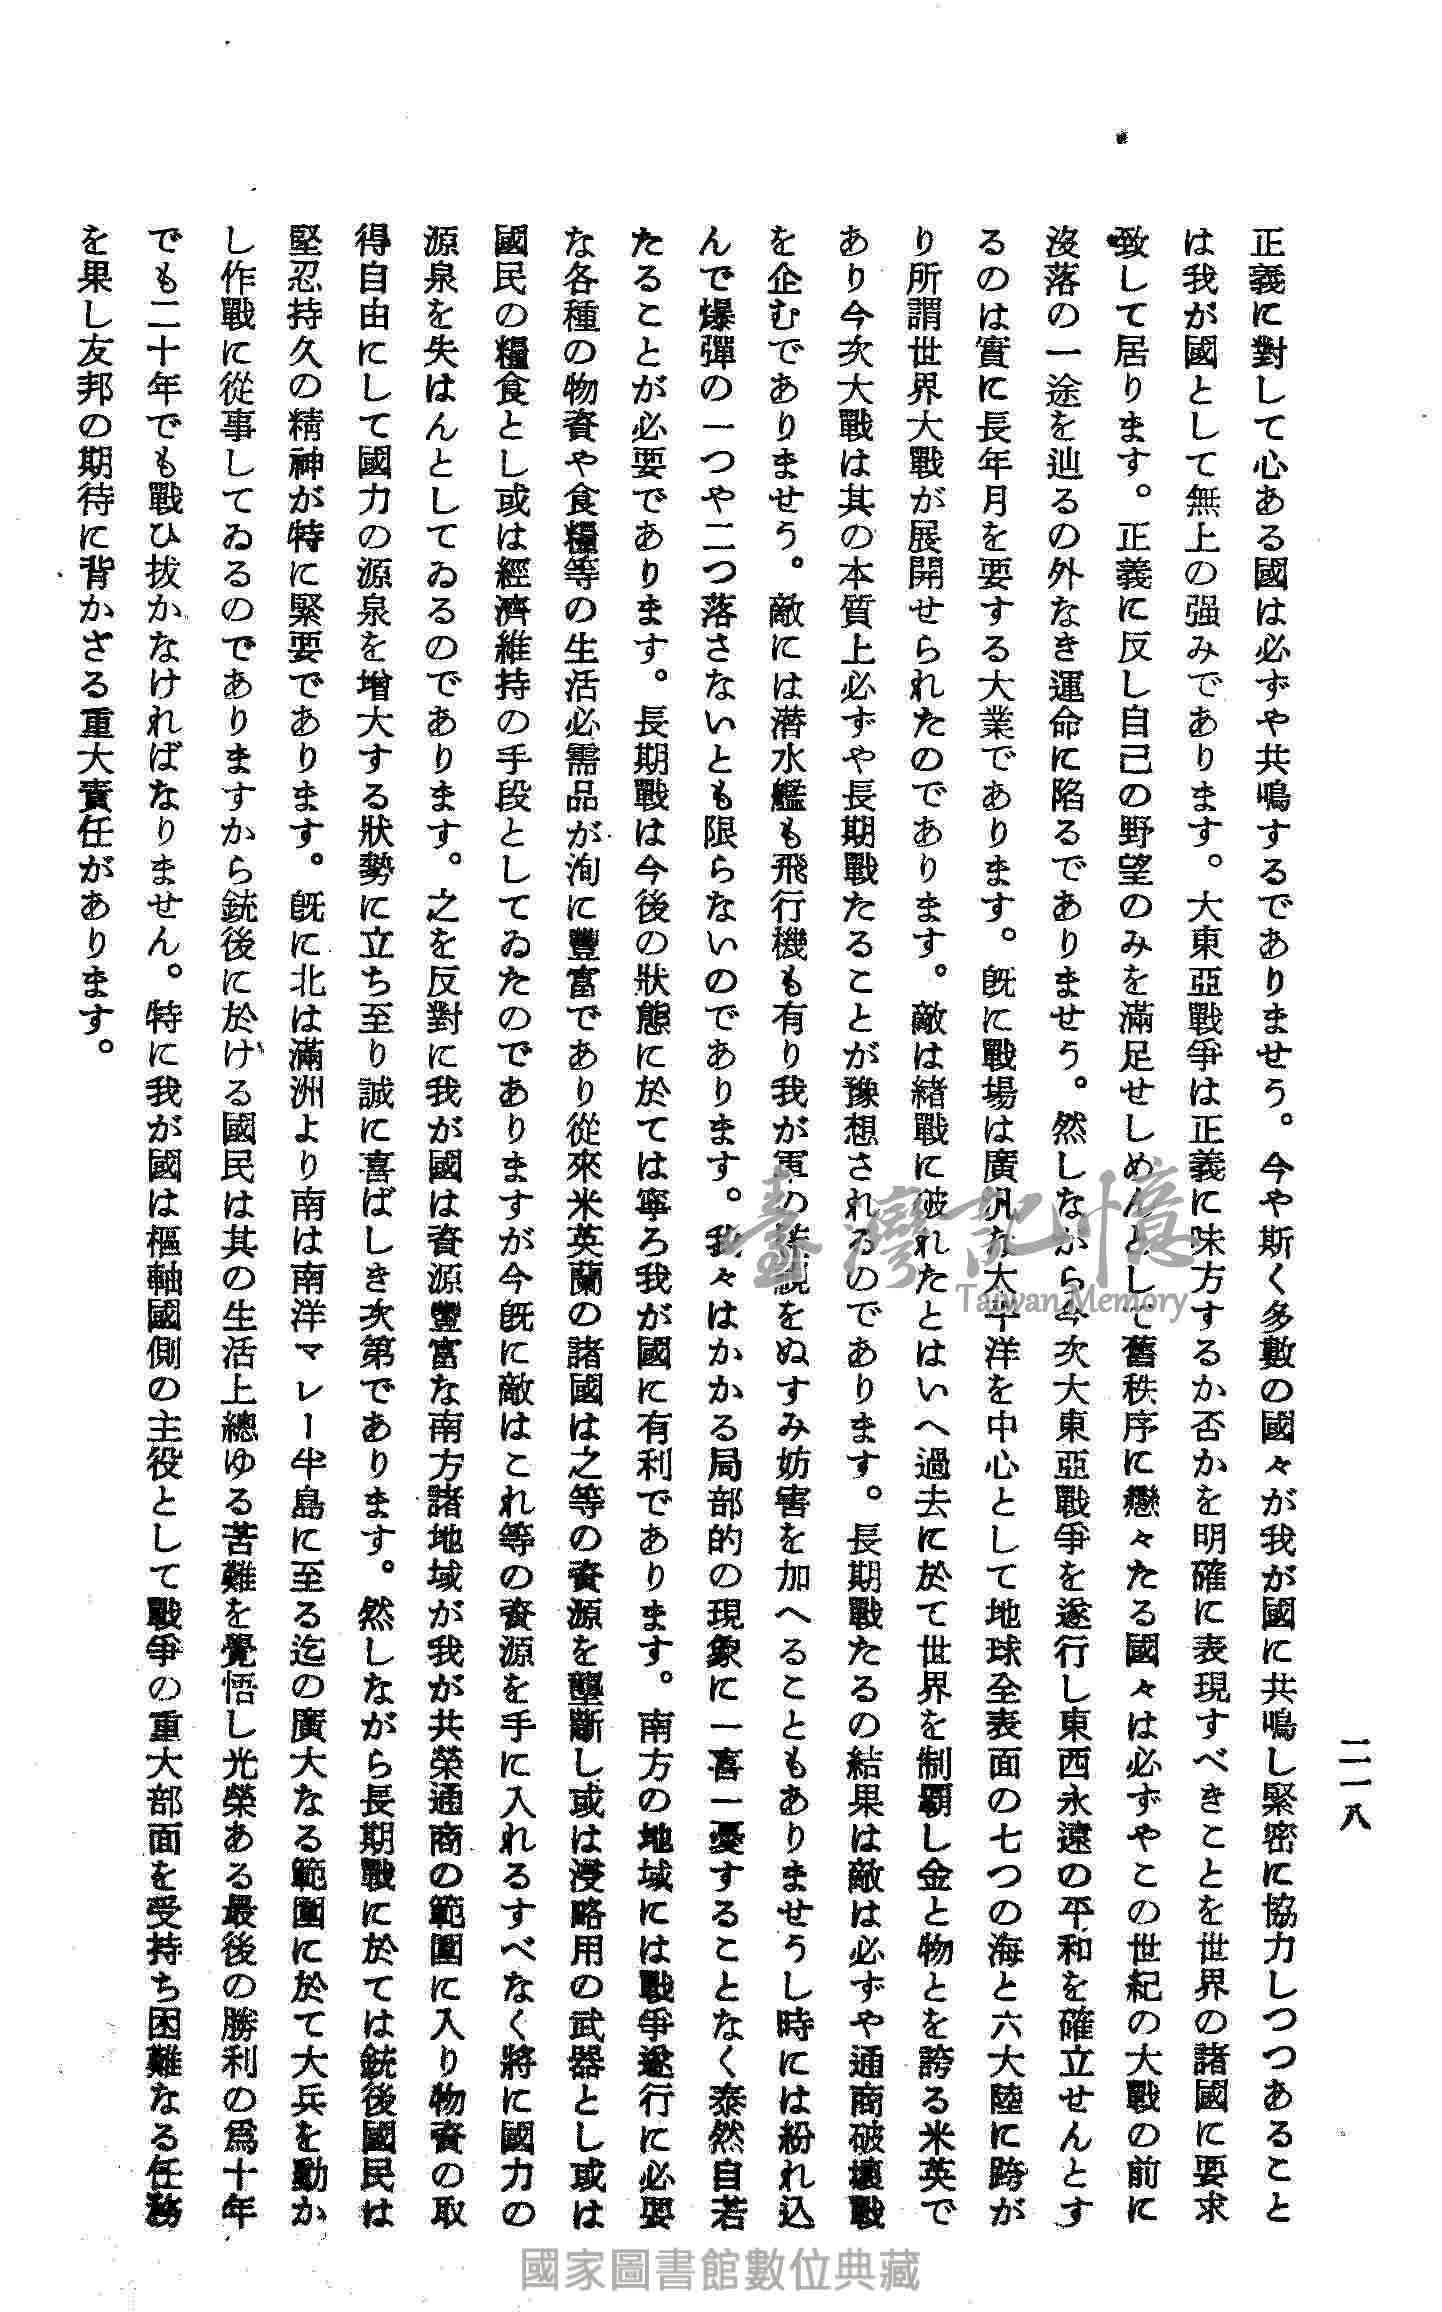 二一八
正義に對して心ある國は必ずや共鳴するでありませう。今や斯く多數の國々が我が國に共鳴し緊密に協力しつつあること
は我が國として無上の强みであります。大東亞戰爭は正義に味方するか否かを明確に表現すべきことを世界の諸國に要求
致して居ります。正義に反し自己の野望のみを滿足せしめんとして舊秩序に戀々たる國々は必ずやこの世紀の大戰の前に
沒落の一途を辿るの外なき運命に陷るでありませう。然しながら今次大東亞戰爭を遂行し東西永遠の平和を確立せんとす
るのは實に長年月を要する大業であります。旣に戰場は廣汎な太平洋を中心として地球全表面の七つの海と六大陸に跨が
り所謂世界大戰が展開せられたのであります。敵は緒戰に破れたとはいへ過去に於て世界を制覇し金と物とを誇る米英で
あり今次大戰は其の本質上必ずや長期戰たることが豫想されるのであります。長期戰たるの結果は敵は必ずや通商破壞戰
を企むでありませう。敵には潜水艦も飛行機も有り我が軍の監視をぬすみ妨害を加へることもありませうし時には紛れ込
んで爆彈の一つや二つ落さないとも限らないのであります。我々はかかる局部的の現象に一喜一憂することなく泰然自若
たることが必要であります。長期戰は今後の狀態に於ては寧ろ我が國に有利であります。南方の地域には戰爭遂行に必要
な各種の物資や食糧等の生活必需品が洵に豐富であり從來米英蘭の諸國は之等の資源を壟斷し或は浸略用の武器とし或は
國民の糧食とし或は經濟維持の手段としてゐたのでありますが今旣に敵はこれ等の資源を手に入れるすべなく將に國力の
源泉を失はんとしてゐるのであります。之を反對に我が國は資源豐富な南方諸地域が我が共榮通商の範圍に入り物資の取
得自由にして國力の源泉を增大する狀勢に立ち至り誠に喜ばしき次第であります。然しながら長期戰に於ては銃後國民は
堅忍持久の精神が特に緊要であります。旣に北は滿洲より南は南洋マレー半島に至る迄の廣大なる範圍に於て大兵を動か
し作戰に從事してゐるのでありますから銃後に於ける國民は其の生活上總ゆる苦難を覺悟し光榮ある最後の勝利の爲十年
でも二十年でも戰ひ拔かなければなりません。特に我が國は樞軸國側の主役として戰爭の重大部面を受持ち困難なる任務
を果し友邦の期待に背かざる重大責任があります。
臺灣記憶
Taiwan Memory
國家圖書館數位典藏